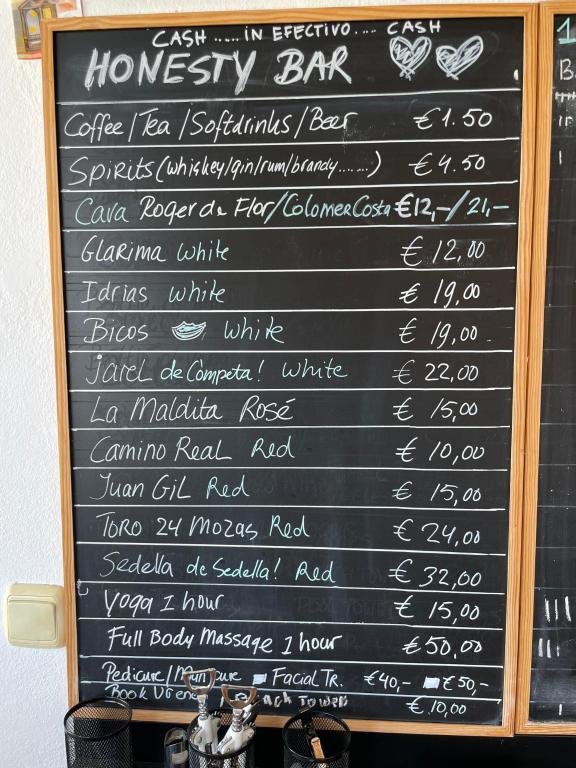 CASH ..... IN EFECTIVO .... CASH
HONESTY BAR
Coffee/Tea/Softdrinks/Beer €1.50
Spirits (whiskey/gin/rum/brandy.......) €4.50
Cava Roger de Flor/Colomer Costa €12,-/21,-
Glarima White € 12,00
Idrias White € 19,00
Bicos White € 19,00
Jarel de Competa! White € 22,00
La Maldita Rosé € 15,00
Camino Real Red € 10,00
Juan Gil Red € 15,00
Toro 24 Mozas Red € 24,00
Sedella de Sedella! Red € 32,00
Yoga 1 hour € 15,00
Full Body Massage 1 hour € 50,00
Pedicure/Manicure Facial Tr. €40,- €50,-
Book € 10,00